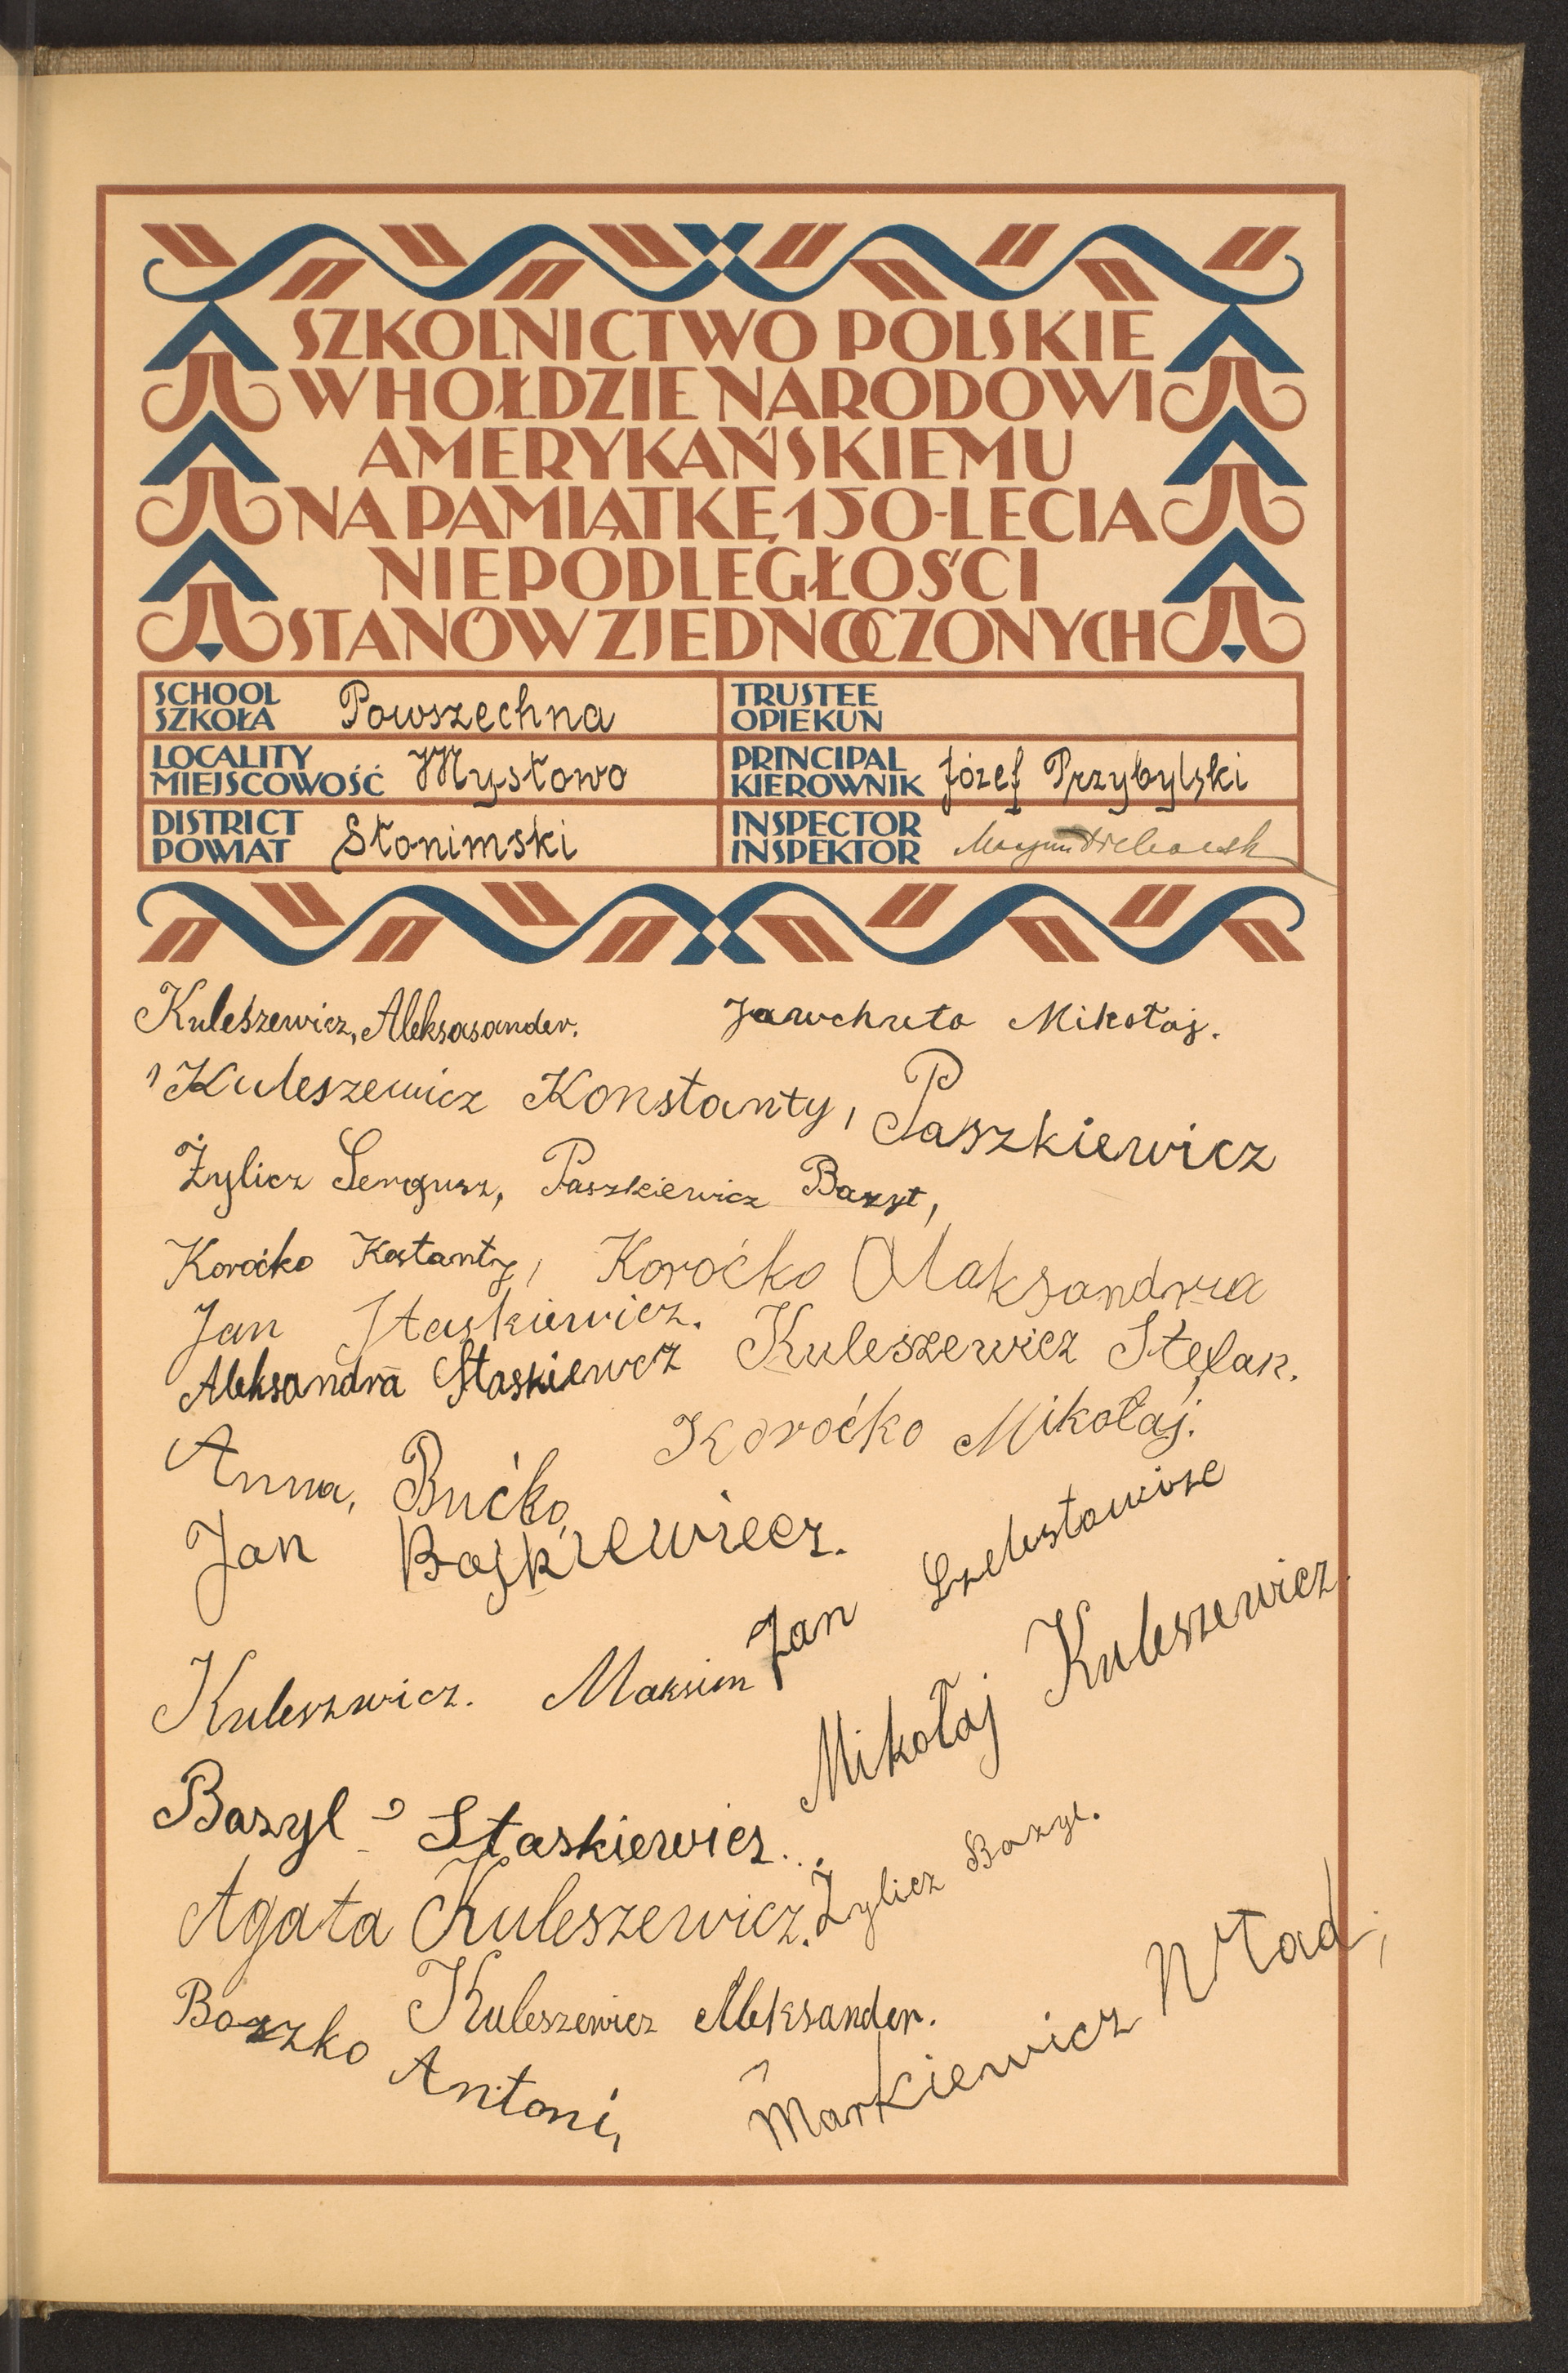 SZKOLNICTWO POLSKIE
W HOŁDZIE NARODOWI
AMERYKAŃSKIEMU
NA PAMIĄTKĘ 150-LECIA
NIEPODLEGŁOŚCI
STANÓW ZJEDNOCZONYCH
SCHOOL
SZKOŁA Powszechna
TRUSTEE
OPIEKUN
LOCALITY
MIEJSCOWOŚĆ Mysłowo
PRINCIPAL
KIEROWNIK Józef Przybylski
DISTRICT
POWIAT Słonimski
INSPECTOR
INSPEKTOR
Kuleszewicz, Aleksasander. Jawchuta Mikołaj.
Kuleszewicz Konstanty, Paszkiewicz
Żylicz Sergusz, Paszkiewicz Bazyl,
Koroćko Kostanty, Koroćko Olaksandra
Jan Staskiewicz.
Aleksandra Staskiewcz Kuleszewicz Stefan.
Anna, Bućko Koroćko Mikołaj.
Jan Bojkiewiecz.
Kuleszwicz. Maksim Jan
Mikołaj Kuleszewicz.
Bazyl Staskiewicz.
Agata Kuleszewicz. Żylicz Bazyl.
Boszko Antoni, Kuleszewicz Aleksander.
Markiewicz Wład,